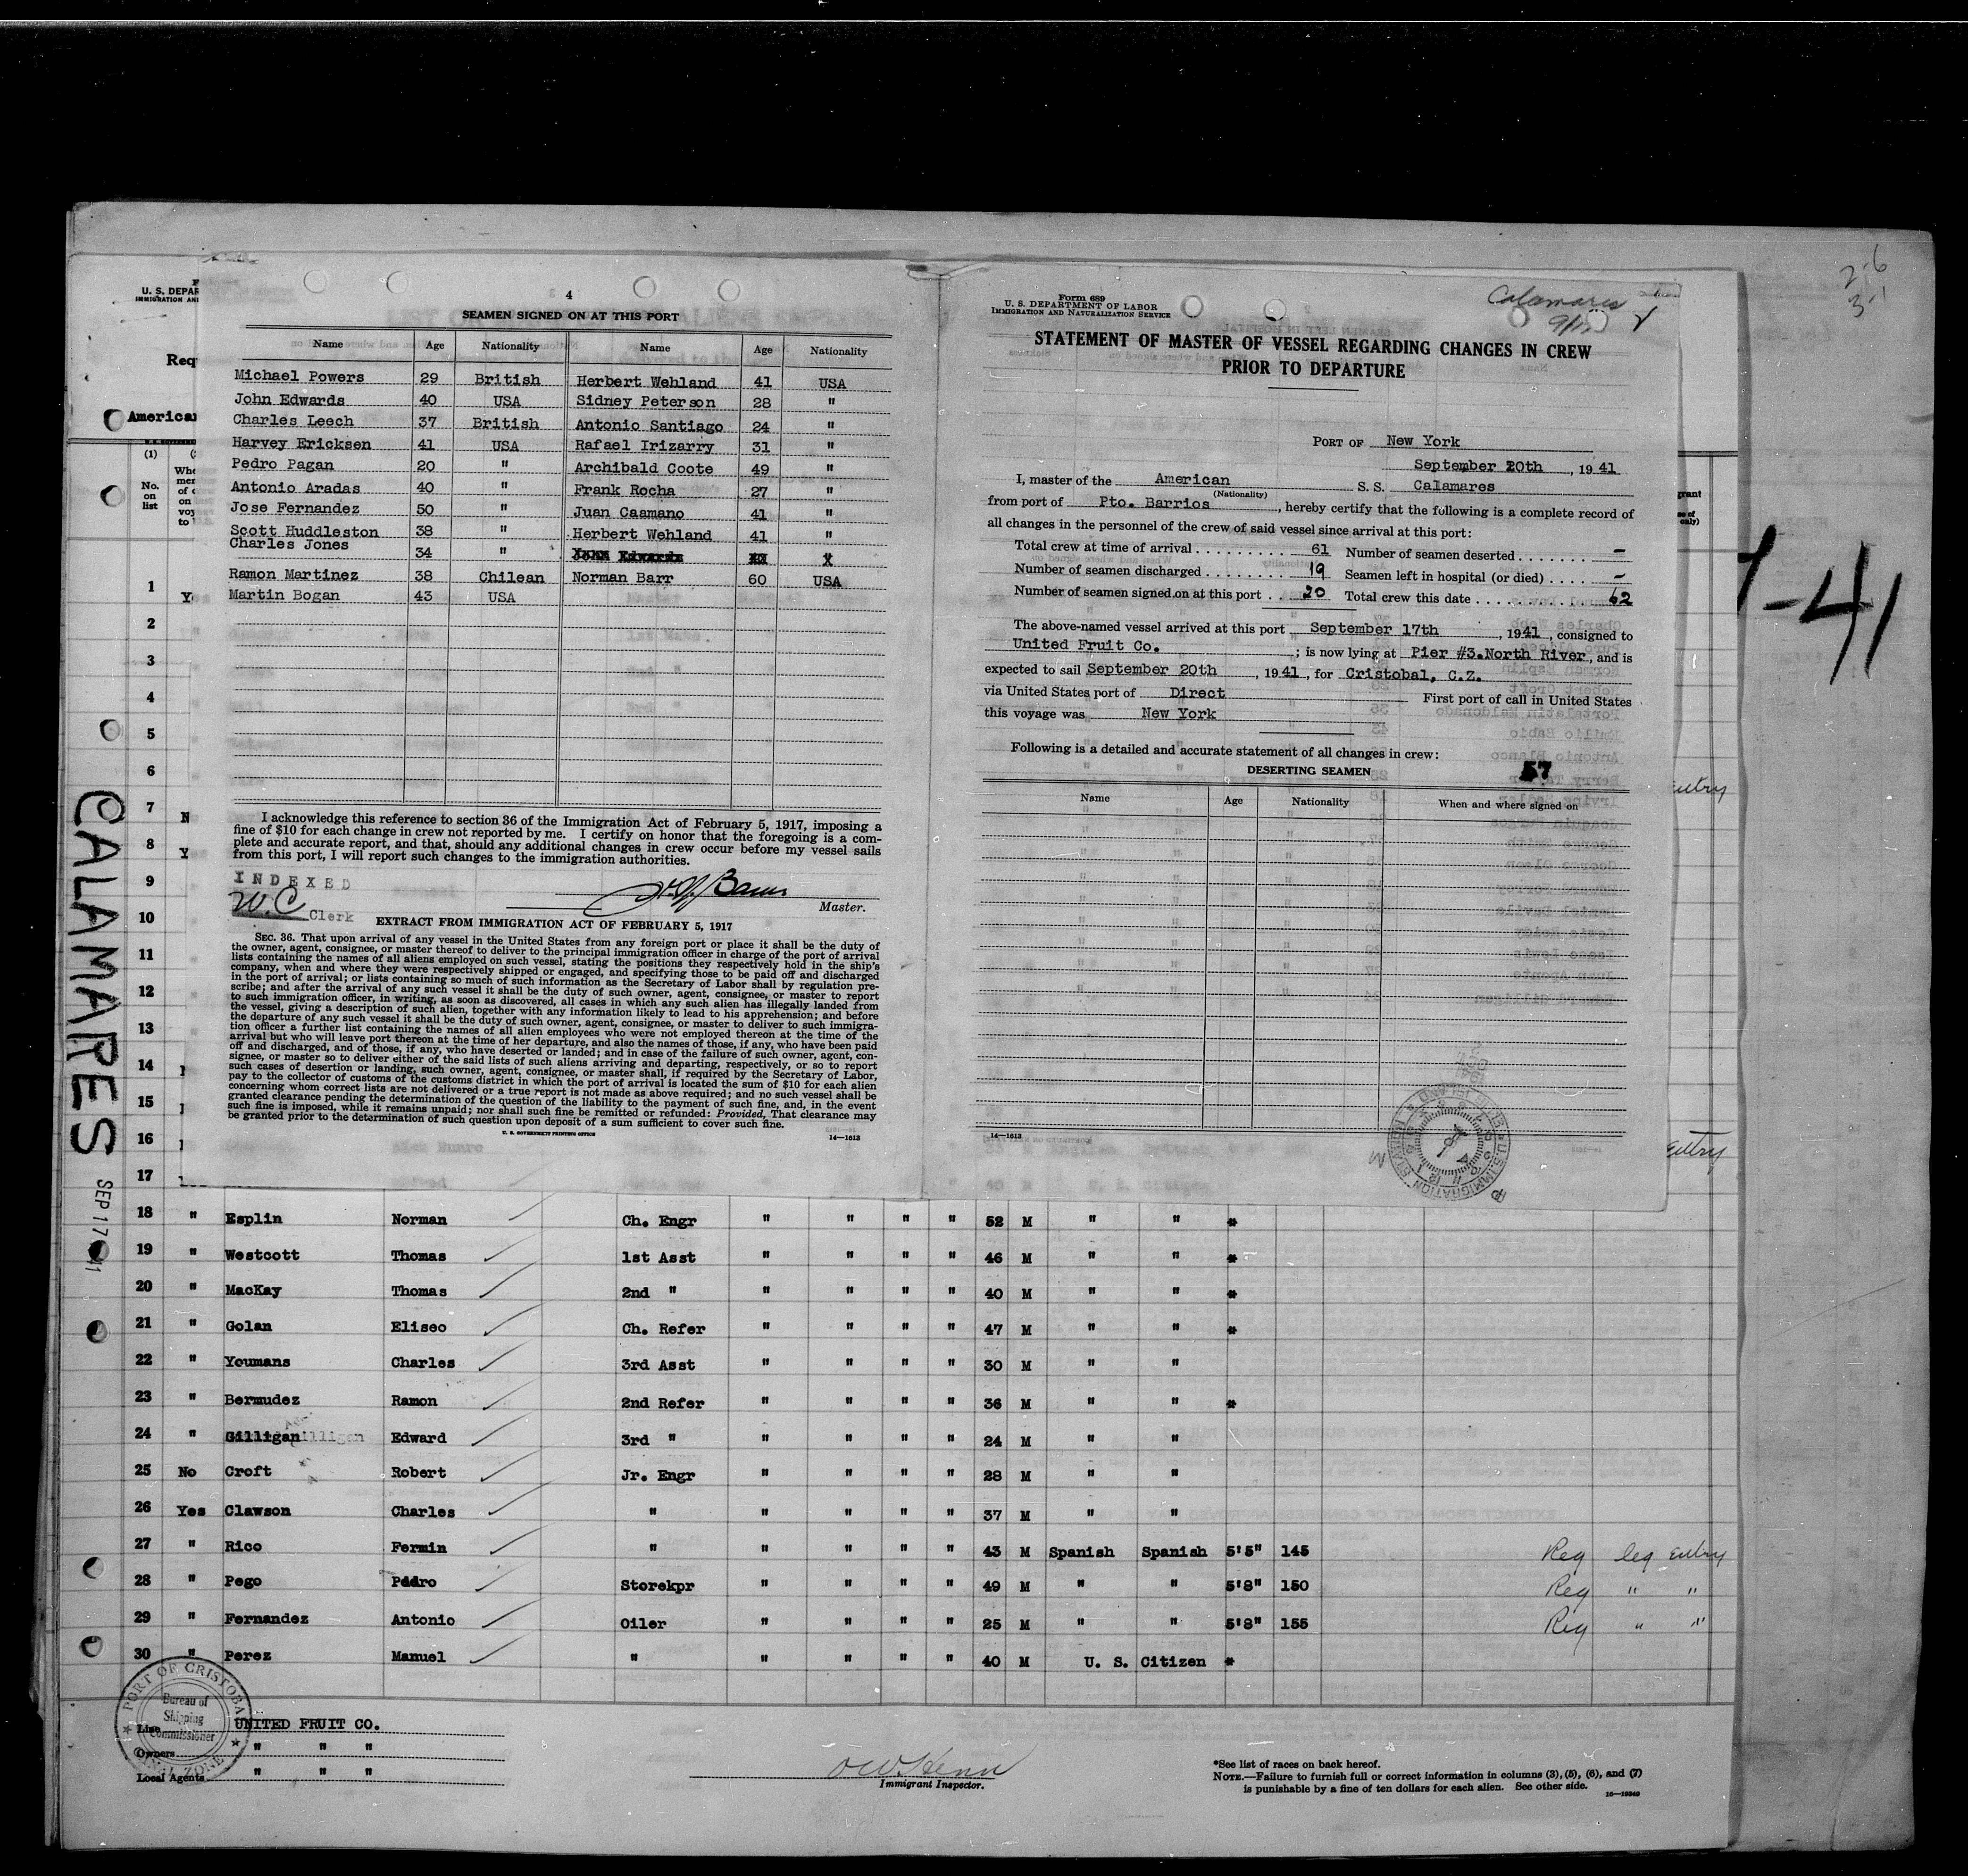 4
SEAMEN SIGNED ON AT THIS PORT
Name Age Nationality Name Age Nationality
Michael Powers 29 British Herbert Wehland 41 USA
John Edwards 40 USA Sidney Peterson 28 "
Charles Leech 37 British Antonio Santiago 24 "
Harvey Ericksen 41 USA Rafael Irizarry 31 "
Pedro Pagan 20 " Archibald Coote 49 "
Antonio Aradas 40 " Frank Rocha 27 "
Jose Fernandez 50 " Juan Caamano 41 "
Scott Huddleston 38 " Herbert Wehland 41 "
Charles Jones 34 "
Ramon Martinez 38 Chilean Norman Barr 60 USA
Martin Bogan 43 USA
I acknowledge this reference to section 36 of the Immigration Act of February 5, 1917, imposing a
fine of $10 for each change in crew not reported by me. I certify on honor that the foregoing is a com-
plete and accurate report, and that, should any additional changes in crew occur before my vessel sails
from this port, I will report such changes to the immigration authorities.
INDEXED
W.C Clerk
Master.
EXTRACT FROM IMMIGRATION ACT OF FEBRUARY 5, 1917
SEC. 36. That upon arrival of any vessel in the United States from any foreign port or place it shall be the duty of
the owner, agent, consignee, or master thereof to deliver to the principal immigration officer in charge of the port of arrival
lists containing the names of all aliens employed on such vessel, stating the positions they respectively hold in the ship's
company, when and where they were respectively shipped or engaged, and specifying those to be paid off and discharged
in the port of arrival; or lists containing so much of such information as the Secretary of Labor shall by regulation pre-
scribe; and after the arrival of any such vessel it shall be the duty of such owner, agent, consignee, or master to report
to such immigration officer, in writing, as soon as discovered, all cases in which any such alien has illegally landed from
the vessel, giving a description of such alien, together with any information likely to lead to his apprehension; and before
the departure of any such vessel it shall be the duty of such owner, agent, consignee, or master to deliver to such immigra-
tion officer a further list containing the names of all alien employees who were not employed thereon at the time of the
arrival but who will leave port thereon at the time of her departure, and also the names of those, if any, who have been paid
off and discharged, and of those, if any, who have deserted or landed; and in case of the failure of such owner, agent, con-
signee, or master so to deliver either of the said lists of such aliens arriving and departing, respectively, or so to report
such cases of desertion or landing, such owner, agent, consignee, or master shall, if required by the Secretary of Labor,
pay to the collector of customs of the customs district in which the port of arrival is located the sum of $10 for each alien
concerning whom correct lists are not delivered or a true report is not made as above required; and no such vessel shall be
granted clearance pending the determination of the question of the liability to the payment of such fine, and, in the event
such fine is imposed, while it remains unpaid; nor shall such fine be remitted or refunded: Provided, That clearance may
be granted prior to the determination of such question upon deposit of a sum sufficient to cover such fine.
U. S. GOVERNMENT PRINTING OFFICE 14—1613
Form 689
U. S. DEPARTMENT OF LABOR
IMMIGRATION AND NATURALIZATION SERVICE
Calamares
9/17
STATEMENT OF MASTER OF VESSEL REGARDING CHANGES IN CREW
PRIOR TO DEPARTURE
PORT OF New York
September 20th, 1941
I, master of the American S. S. Calamares
(Nationality)
from port of Pto. Barrios, hereby certify that the following is a complete record of
all changes in the personnel of the crew of said vessel since arrival at this port:
Total crew at time of arrival 61 Number of seamen deserted –
Number of seamen discharged 19 Seamen left in hospital (or died) –
Number of seamen signed on at this port 20 Total crew this date 62
The above-named vessel arrived at this port September 17th, 1941, consigned to
United Fruit Co. ; is now lying at Pier #3.North River, and is
expected to sail September 20th, 1941, for Cristobal, C.Z.
via United States port of Direct First port of call in United States
this voyage was New York
Following is a detailed and accurate statement of all changes in crew:
DESERTING SEAMEN 57
Name Age Nationality When and where signed on
14—1613
U. S. DEPAR
IMMIGRATION AN
Req
American
(1)
No.
on
list
1 Y
2
3
4
5
6
7 N
8 Y
9
10
11
12
13
14
15
16
17
CALAMARES
SEP 17 41
2-6
3-1
-41
entry
entry
18 " Esplin Norman Ch. Engr " " " " 52 M " " *
19 " Westcott Thomas 1st Asst " " " " 46 M " " *
20 " MacKay Thomas 2nd " " " " " 40 M " " *
21 " Golan Eliseo Ch. Refer " " " " 47 M " " *
22 " Youmans Charles 3rd Asst " " " " 30 M " "
23 " Bermudez Ramon 2nd Refer " " " " 36 M " " *
24 " Gilligan Edward 3rd " " " " " 24 M " "
25 No Croft Robert Jr. Engr " " " " 28 M " "
26 Yes Clawson Charles " " " " " 37 M " "
27 " Rico Fermin " " " " " 43 M Spanish Spanish 5'5" 145 Reg leg entry
28 " Pego Pedro Storekpr " " " " 49 M " " 5'8" 150 Reg " "
29 " Fernandez Antonio Oiler " " " " 25 M " " 5'8" 155 Reg " "
30 " Perez Manuel " " " " " 40 M U. S. Citizen *
PORT OF CRISTOBAL
Bureau of
Shipping
Commissioner
CANAL ZONE
Line UNITED FRUIT CO.
Owners " " "
Local Agents " " "
Immigrant Inspector.
*See list of races on back hereof.
NOTE.—Failure to furnish full or correct information in columns (3), (5), (6), and (7)
is punishable by a fine of ten dollars for each alien. See other side.